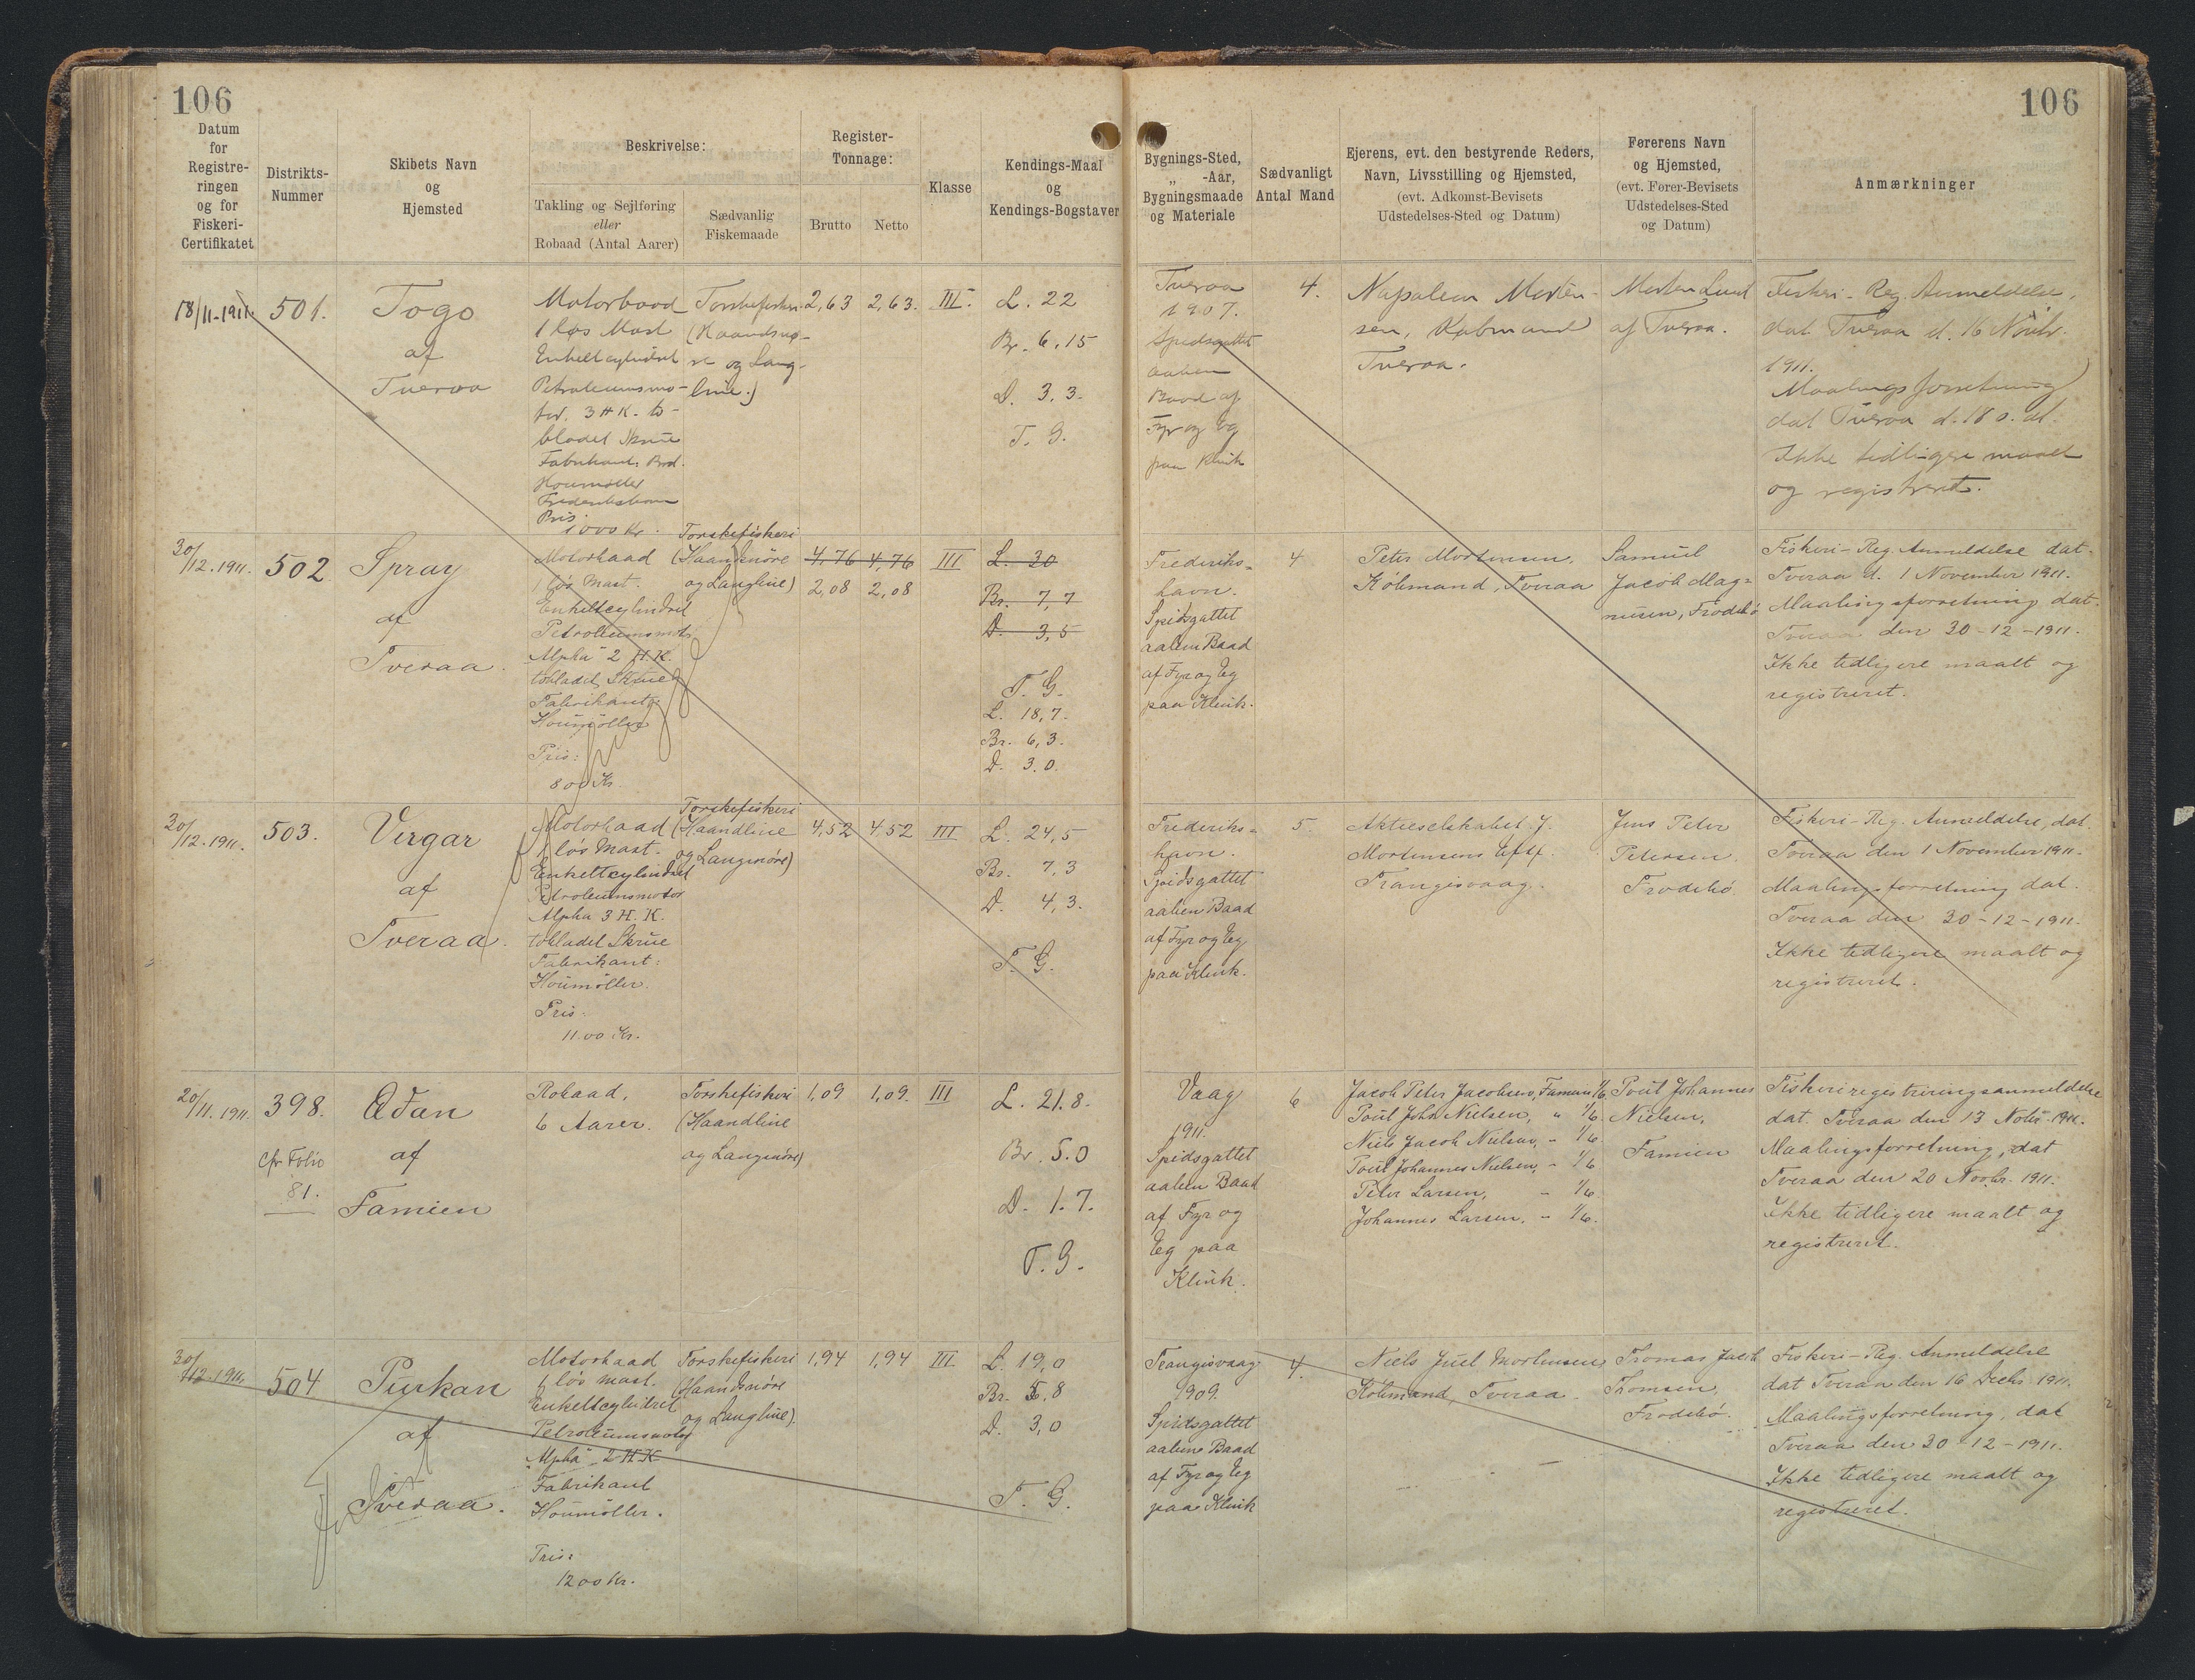 106
106
Datum
for
Registre-
ringen
og for
Fiskeri-
Certifikatet
Distrikts-
Nummer
Skibets Navn
og
Hjemsted
Beskrivelse:
Takling og Sejlføring
eller
Robaad (Antal Aarer)
Sædvanlig
Fiskemaade
Register-
Tonnage:
Brutto
Netto
Klasse
Kendings-Maal
og
Kendings-Bogstaver
Bygnings-Sted,
„ -Aar,
Bygningsmaade
og Materiale
Sædvanligt
Antal Mand
Ejerens, evt. den bestyrende Reders,
Navn, Livsstilling og Hjemsted,
(evt. Adkomst-Bevisets
Udstedelses-Sted og Datum)
Førerens Navn
og Hjemsted,
(evt. Fører-Bevisets
Udstedelses-Sted
og Datum)
Anmærkninger
18/11-1911.
501.
Togo
af
Tveraa
Motorbaad
1 løs Mast
Enkeltcylindret
Petroleumsmo-
tor. 3 HK. to-
bladet Skrue
Fabrikant: Brd.
Houmøller
Frederikshavn
Pris:
1000 Kr.
Torskefiskeri
(Haandsnø-
re og Lang-
line.)
2,63
2,63.
III.
L. 22
Br. 6,15
D. 3,3.
T. G.
Tveraa
1907.
Spidsgattet
aaben
Baad af
Fyr og Eg
paa Klink
4.
Napoleon Morten-
sen, Købmand
Tveraa.
Morten Lund
af Tveraa.
Fiskeri-Reg. Anmeldelse,
dat Tveraa d. 16 Novbr.
1911.
Maalingsforretning
dat Tveraa d. 18 s. at.
Ikke tidligere maalt
og registreret.
30/12.1911.
502
Spray
af
Tveraa.
Motorbaad
1 løs Mast.
Enkeltcylindret
Petroleumsmotor
"Alpha" 2 H.K.
tobladet Skrue
Fabrikant:
Houmøller
Pris:
800 Kr.
Torskefiskeri
(Haandsnøre
og Langline)
4,76 4,76
2,08 2,08
III
L. 20
Br. 7,7
D. 3,5
T. G.
L. 18,7.
Br. 6,3.
D. 3.0.
Frederiks-
havn.
Spidsgattet
aaben Baad
af Fyr og Eg
paa Klink.
4
Peter Mortensen,
Købmand, Tveraa
Samuel
Jacob Mag-
nusen, Frodebø
Fiskeri-Reg. Anmeldelse dat.
Tveraa d. 1 November 1911.
Maalingsforretning dat.
Tveraa den 30-12-1911.
Ikke tidligere maalt og
registreret.
30/12.1911.
503.
Virgar
af
Tveraa.
Motorbaad
1 løs Mast.
Enkeltcylindret
Petroleumsmotor
Alpha 3 H. K.
tobladet Skrue
Fabrikant:
Houmøller.
Pris:
11.00 Kr.
Torskefiskeri
(Haandline
og Langsnøre)
4,52
4,52
III
L. 24,5
Br. 7,3
D. 4,3.
T. G.
Frederiks-
havn.
Spidsgattet
aaben Baad
af Fyr og Eg
paa Klink.
5.
Aktieselskabet J.
Mortensens Eftf.
Trangisvaag.
Jens Peter
Petersen.
Frodebø
Fiskeri-Reg. Anmeldelse, dat.
Tveraa den 1 November 1911.
Maalingsforretning dat.
Tveraa den 30-12-1911.
Ikke tidligere maalt og
registreret.
20/11.1911.
398.
cfr Folio
81.
Adan
af
Famien
Robaad,
6 Aarer.
Torskefiskeri
(Haandline
og Langsnøre)
1,09
1,09.
III
L. 21.8.
Br. 5.0
D. 1.7.
T. G.
Vaag
1911.
Spidsgattet
aaben Baad
af Fyr og
Eg paa
Klink.
6
Jacob Peter Jacobsen, Famien 1/6.
Poul John Nielsen, " 1/6.
Niels Jacob Nielsen, - 1/6
Poul Johannes Nielsen, - 1/6
Peter Larsen, - 1/6.
Johannes Larsen. - 1/6.
Poul Johannes
Nielsen,
Famien
Fiskeriregistreringsanmeldelse
dat. Tveraa den 13 Novbr. 1911.
Maalingsforretning, dat
Tveraa den 20 Novbr. 1911.
Ikke tidligere maalt og
registreret.
30/12.1911.
504
Purkan
af
Tveraa.
Motorbaad
1 løs mast.
Enkeltcylindret
Petroleumsmotor
"Alpha" 2 H.K
Fabrikant
Houmøller.
Pris:
1200 Kr.
Torskefiskeri
(Haandsnøre
og Langline).
1,94
1,94
III.
L. 19,0
Br. 5,8
D. 3,0
T. G.
Trangisvaag
1909.
Spidsgattet
aaben Baad
af Fyr og Eg
paa Klink
4.
Niels Juel Mortensen
Købmand, Tveraa.
Tromas Jacob
Thomsen,
Frodebø.
Fiskeri-Reg. Anmeldelse
dat Tveraa den 16 Decbr 1911.
Maalingsforretning, dat
Tveraa den 30-12-1911.
Ikke tidligere maalt og
registreret.